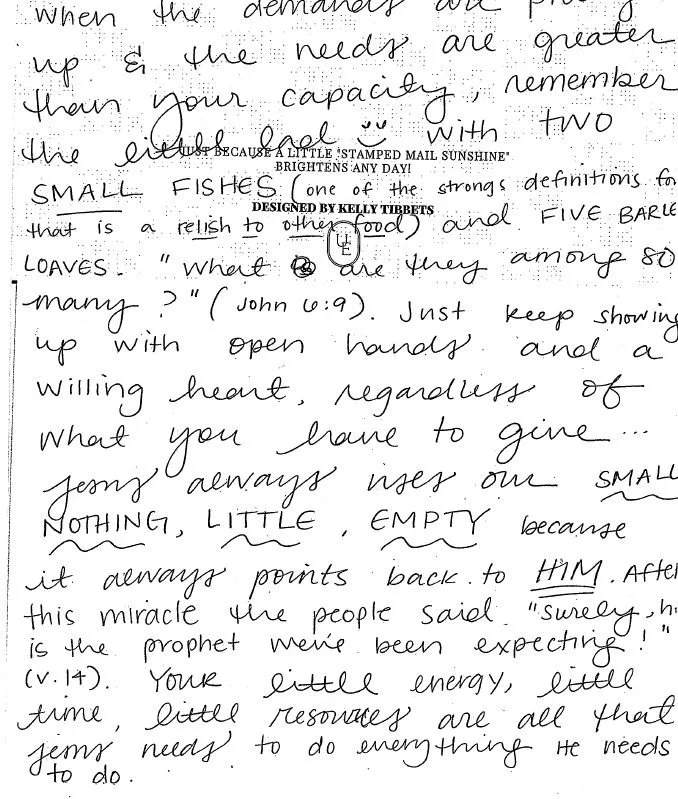 when the demands are
up & the needs are greater
than your capacity, remember
the little lad with TWO
JUST BECAUSE A LITTLE "STAMPED MAIL SUNSHINE"
BRIGHTENS ANY DAY!
SMALL FISHES (one of the strongs definitions fo
DESIGNED BY KELLY TIBBETS
that is a relish to other food) and FIVE BARLE
LOAVES. "what are they among so
many?" (John 6:9). Just keep showing
up with open hands and a
willing heart, regardless of
what you have to give...
Jesus always uses our SMALL
NOTHING, LITTLE, EMPTY because
it always points back to HIM. After
this miracle the people said "surely, h
is the prophet we've been expecting!"
(v.14). YOUR little energy, little
time, little resources are all that
Jesus needs to do everything He needs
to do.